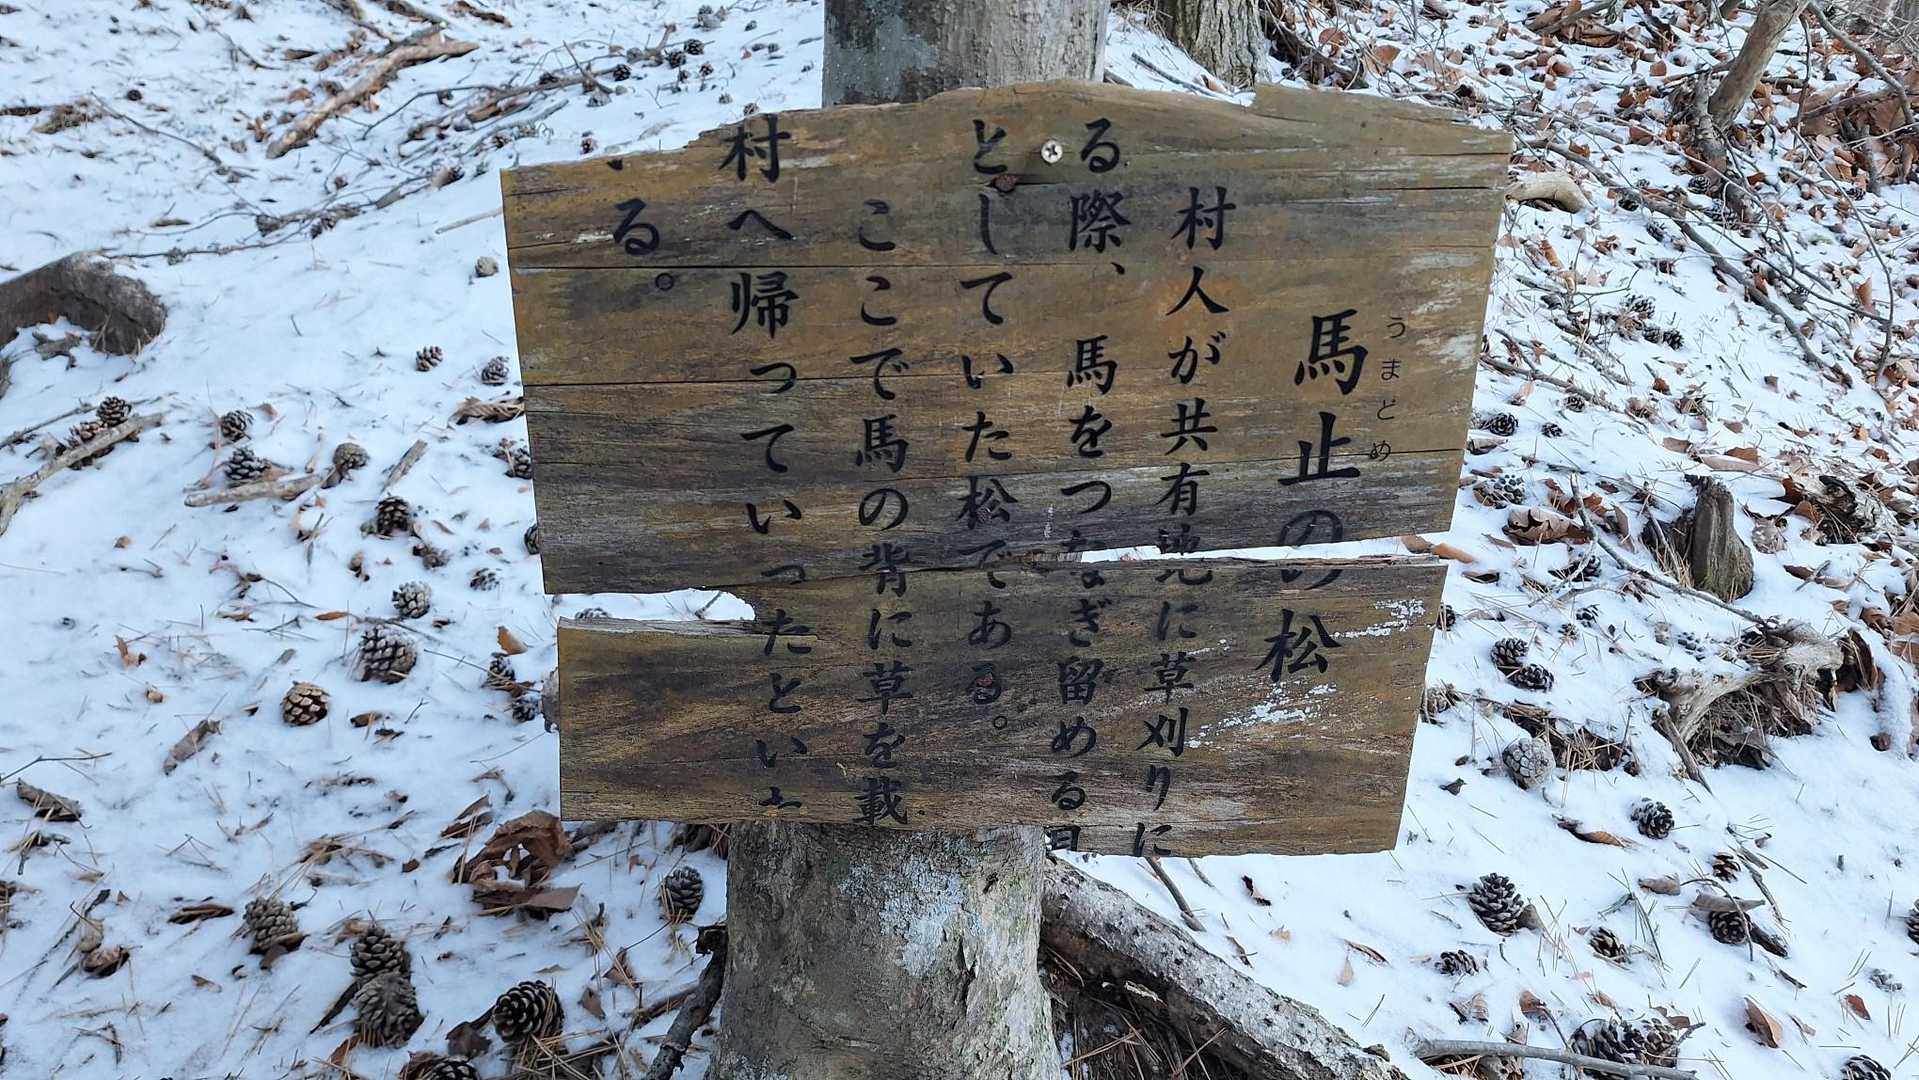 馬止の松
うまどめ
村人が共有地に草刈りに
る際、馬をつなぎ留める
としていた松である。
ここで馬の背に草を載
村へ帰っていったとい
る。